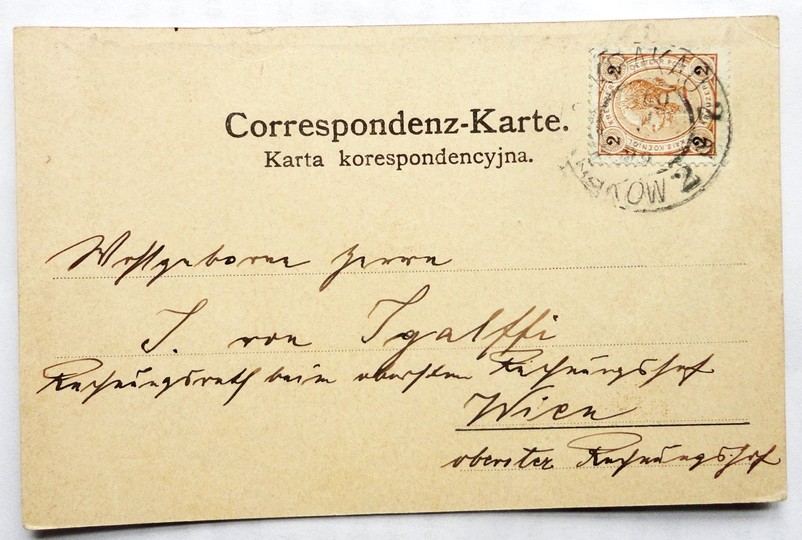 Correspondenz-Karte.
Karta korespondencyjna.
2 2
2 2
KRAKÓW
Wohlgeborenen Herrn
J. von Igálffi
Rechnungsrath beim obersten Rechnungshof
Wien
oberster Rechnungshof